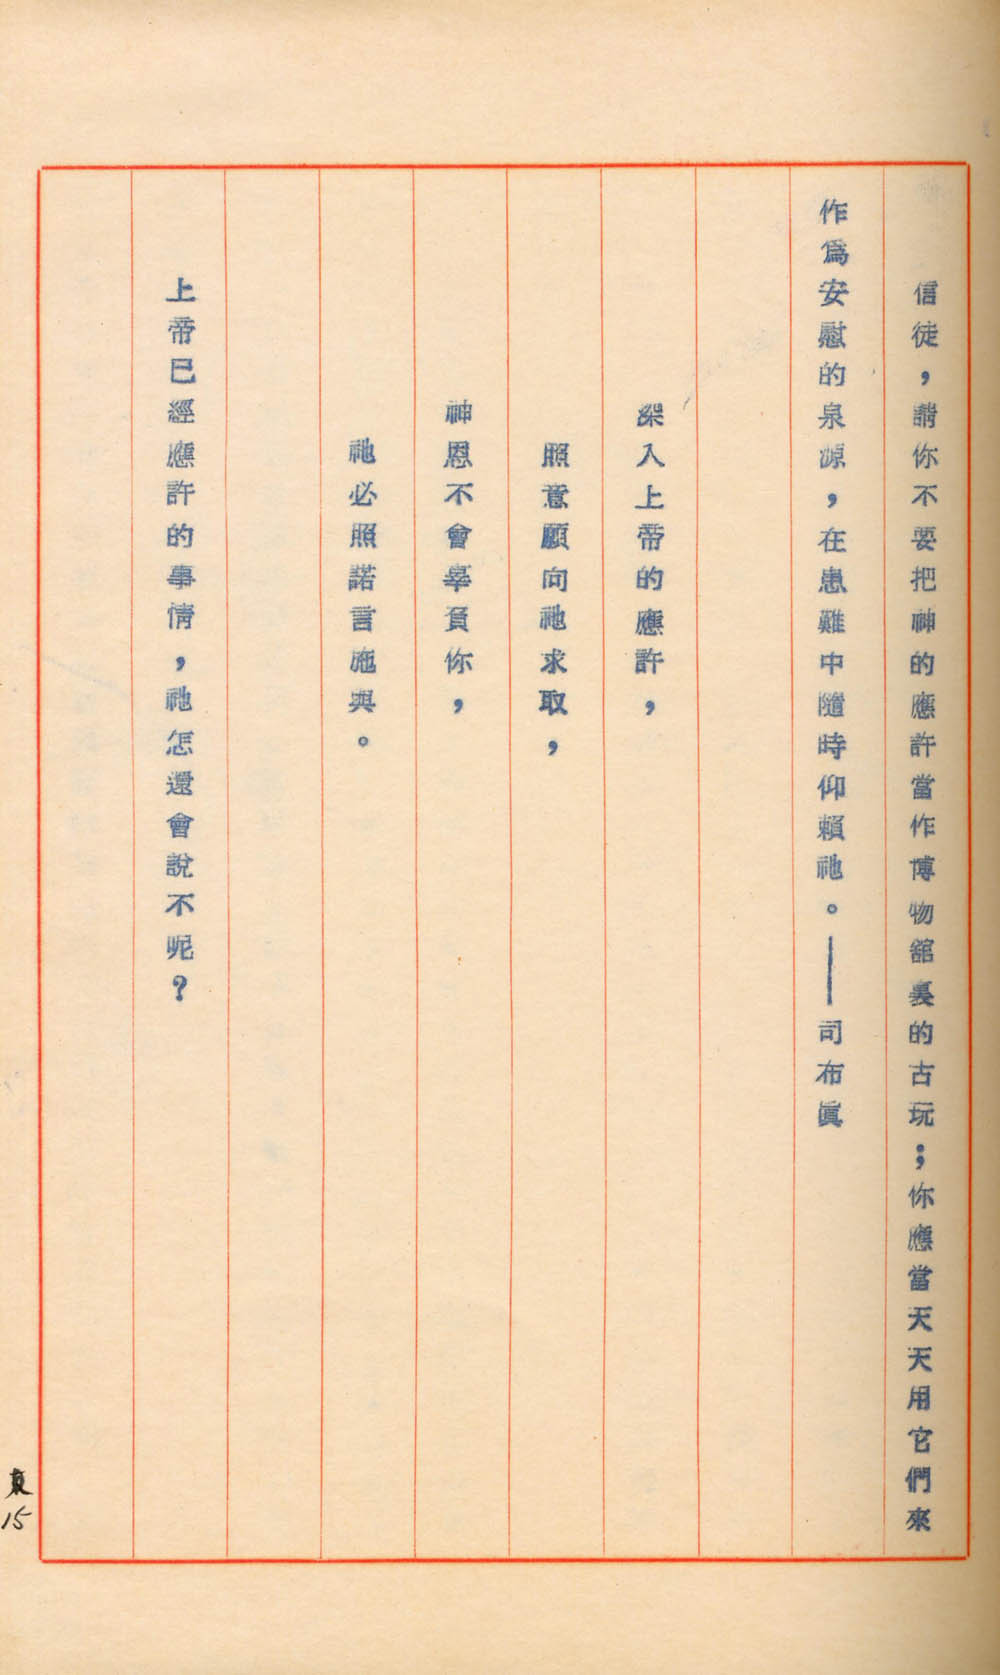 信徒，請你不要把神的應許當作博物舘裏的古玩；你應當天天用它們來
作爲安慰的泉源，在患難中隨時仰賴祂。——司布眞
深入上帝的應許，
照意願向祂求取，
神恩不會辜負你，
祂必照諾言施與。
上帝已經應許的事情，祂怎還會說不呢？
15